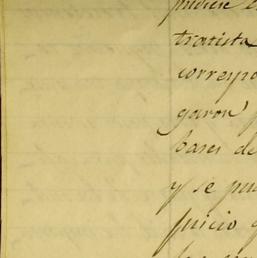 pudiese e
tratista
correspo
garon
bases de
y se pu
juicio